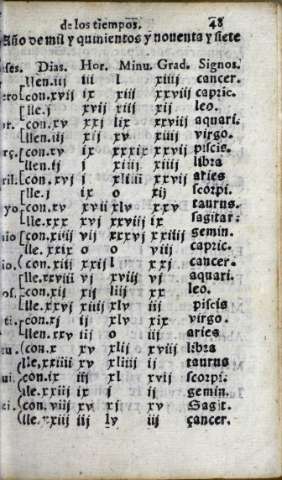 de los tiempos. 48
Año de mil y quinientos y nouenta y siete
ses. Dias. Hor. Minu. Grad. Signos.
llen.iij iij l xiiij cancer.
ero con.xvij ix xiij xxviij capric.
lle.j xvij xiij xij leo.
br. con.xv xxj lix xxviij aquari.
llen.iij iij xv iij virgo.
rç. con.xv ix xxxix xxvij piscis.
llen.ij ij xiiij libra
ril. con.xvj j xxvj aries
lle.j ix o xij scorpi.
yo con.xv xvij xlv xxv taurus.
lle.xxx xvj xxviij ix sagitar:
nio con.xiiij vij xxiiij gemin.
lle.xxix o viij capric.
io. con.xiij l xxj cancer.
lle.xxviij vj xviij vj aquari.
os. con.xij xij xx leo.
lle.xxvj xiiij xlv iij piscis
ti. con.xj ij xlv xix virgo.
llen.xxv iij o iij aries
u. con.x xv xlij xviij libra
lle.xxiiij xv xliiij ij taurus
ui. con.ix iij xl xvij scorpi.
lle.xxiij ix j ij gemin.
ci. con.viij xv xj xv Sagit.
lle.xxij iij lv iij cancer.